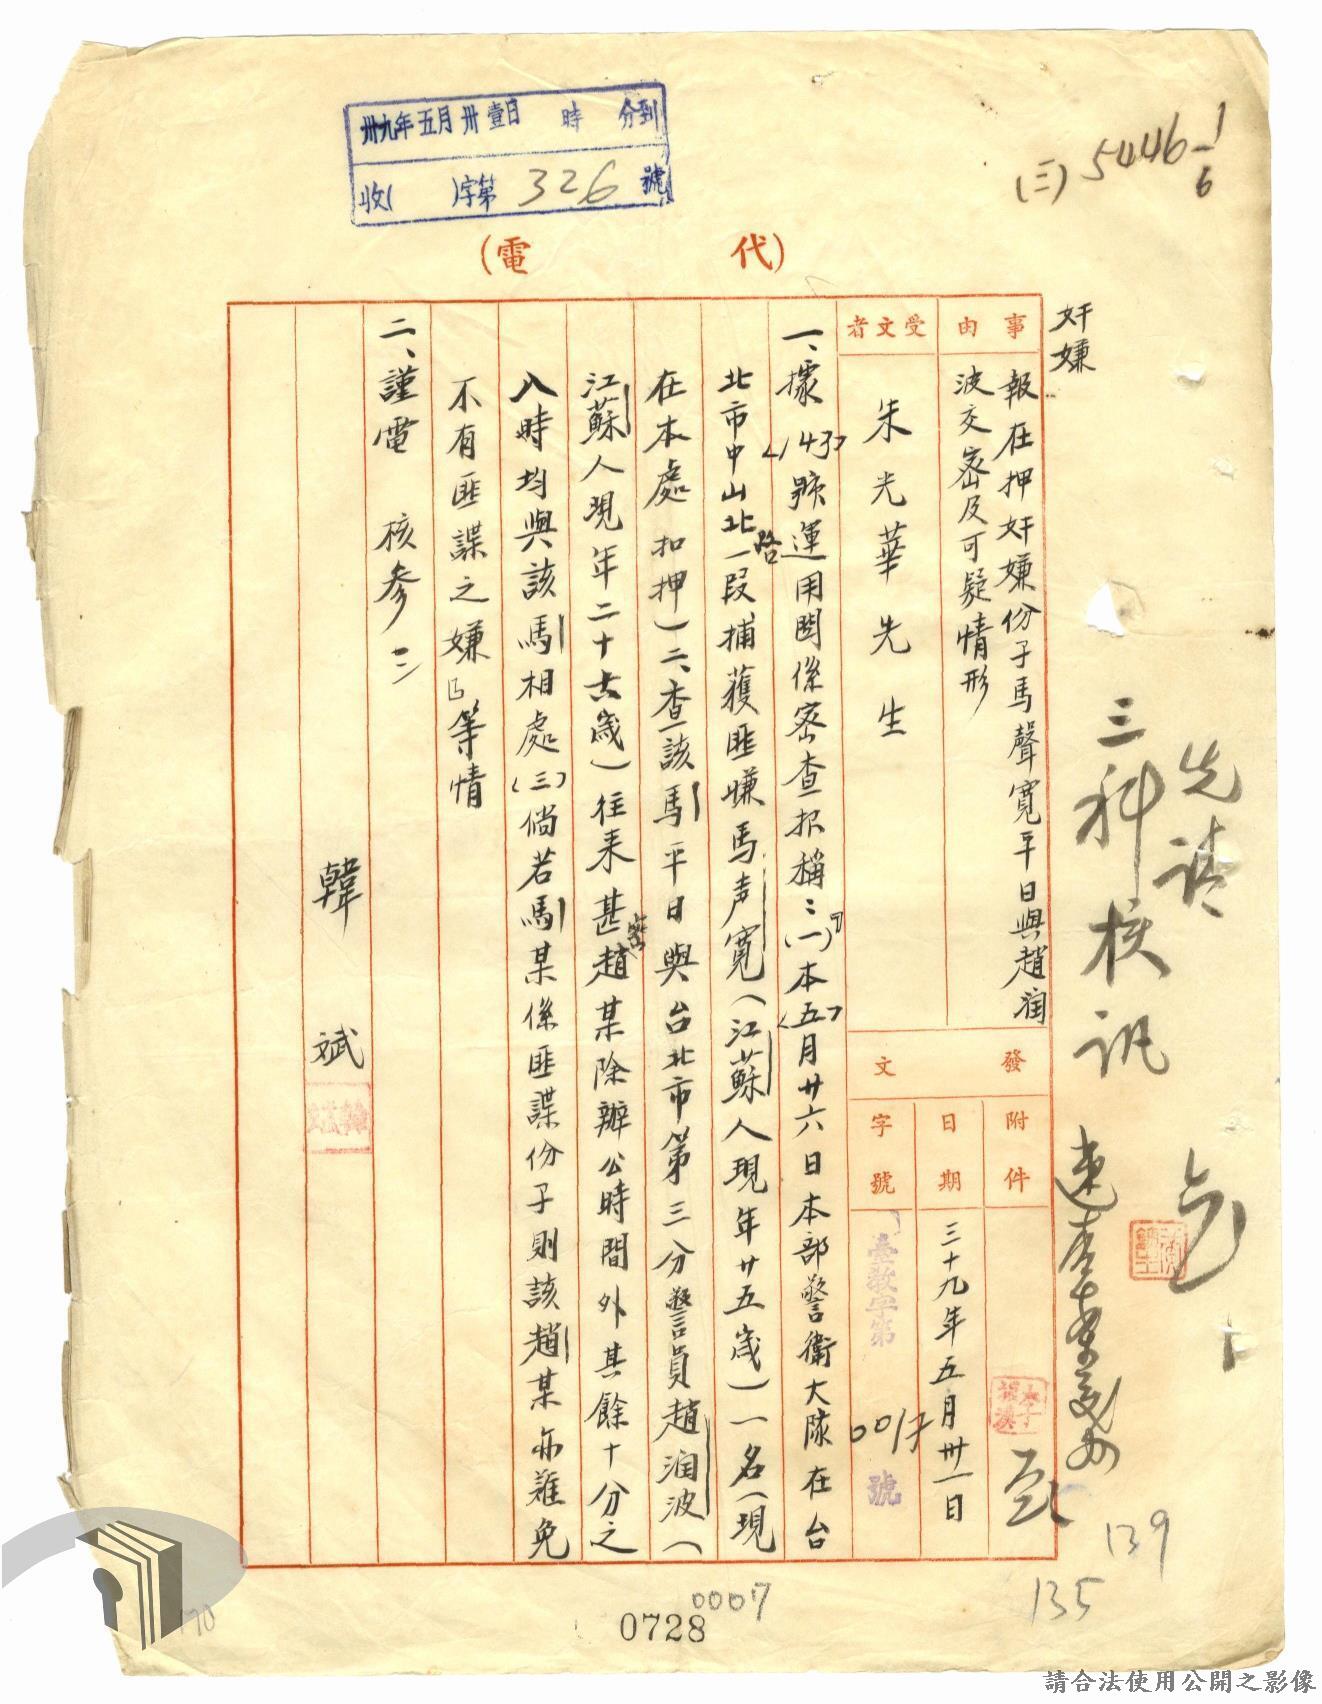 卅九年五月卅壹日 時 分到
收( )字第326號
(三)5446 1/6
(代電)
奸嫌
事由
報在押奸嫌份子馬聲寬平日與趙润
波交密及可疑情形
受文者
朱光華先生
發文
附件
日期
三十九年五月卅一日
字號
臺教字第 001 號
一、據(143)號運用關係密查报稱：「(一)本(五)月廿六日本部警衛大隊在台
北市中山北路一段捕獲匪嫌馬声寬(江蘇人現年廿五歲)一名(現
在本處扣押)二、查該馬平日與台北市第三分警員趙润波(
江蘇人現年二十六歲)往来甚密趙某除辦公時間外其餘十分之
八時均與該馬相處(三)倘若馬某係匪諜份子則該趙某亦難免
不有匪諜之嫌」等情
二、謹電 核参
韓斌
先請
三科核訊
139
135
0007
0728
170
請合法使用公開之影像